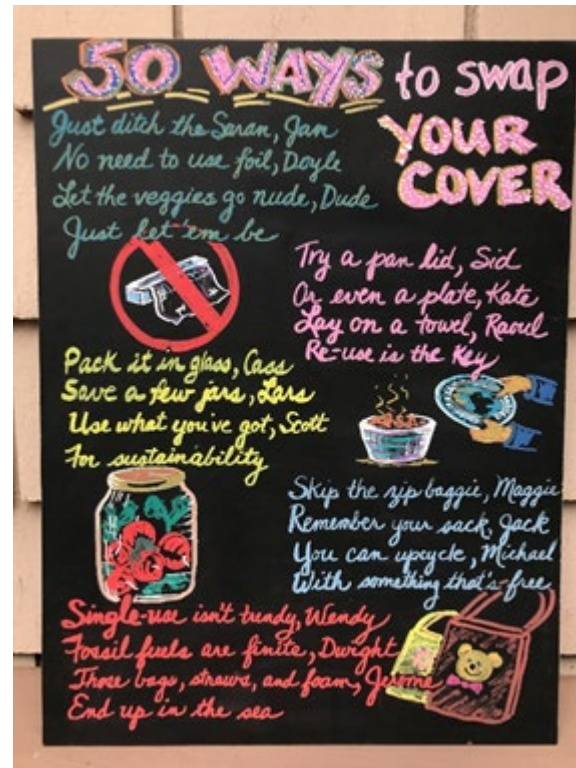 50 WAYS to swap
YOUR
COVER
Just ditch the Saran, Jan
No need to use foil, Doyle
Let the veggies go nude, Dude
Just let 'em be
Try a pan lid, Sid
Or even a plate, Kate
Lay on a towel, Raoul
Re-use is the key
Pack it in glass, Cass
Save a few jars, Lars
Use what you've got, Scott
For sustainability
Skip the zip baggie, Maggie
Remember your sack, Jack
You can upcycle, Michael
With something that's free
Single-use isn't trendy, Wendy
Fossil fuels are finite, Dwight
Those bags, straws, and foam, Jerome
End up in the sea